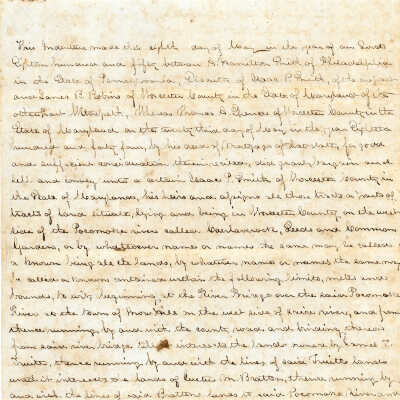 This Indenture made this eighth day of May in the year of our Lord
Eighteen hundred and fifty between G. Hamilton Smith of Philadelphia
in the State of Pennsylvania, of Isaac P. Smith, of the one part
and James B. Robins of Worcester County in the State of Maryland of the
other part Witnesseth, Whereas Thomas A. Spence of Worcester County in the
State of Maryland on the twenty third day of May in the year Eighteen
hundred and forty four, by his deed of Mortgage of that date, for good
and sufficient consideration therein recited, did grant bargain and
sell and convey unto a certain Isaac P. Smith of Worcester County in
the State of Maryland, his heirs and assigns all those tracts or parts of
tracts of land situate, lying and being in Worcester County, on the west
side of the Pocomoke river called and Common
Garden, or by whatsoever name or names the same may be called
or Known being all the lands, by whatever name or names the same may
be called or Known contained within the following limits, metes and
bounds, to wit, beginning at the River Bridge over the said Pocomoke
River at the town of Snow Hill on the west side of said river, and from
thence running, by and with the county road and binding thereon
from said river bridge till it intersects the lands owned by James T.
Truitt, thence running by and with the lines of said Truitts lands
until it intersects the lands of M. Bratton, thence running by
and with the lines of said Bratton lands to said Pocomoke River and